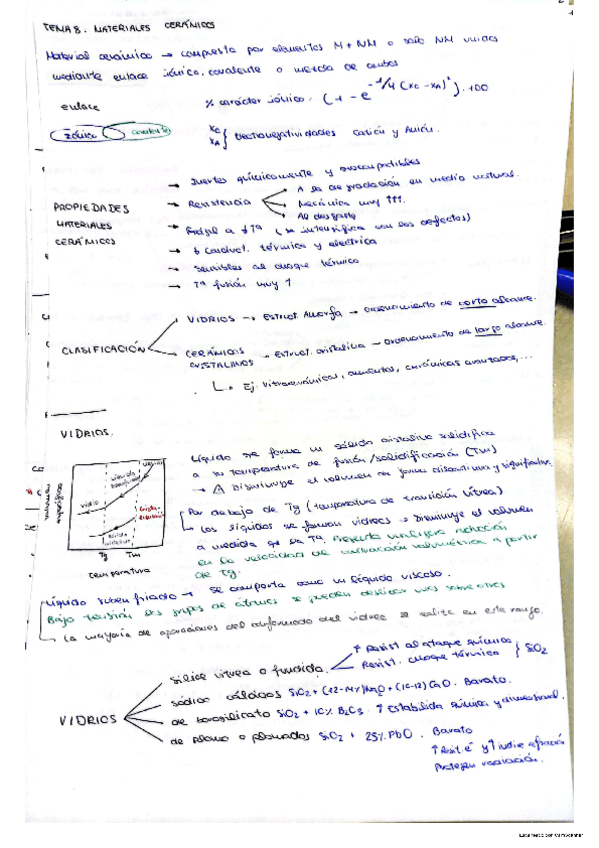 TEMA 8. MATERIALES CERÁMICOS
Material cerámico → compuesto por elementos M + NM o solo NM unidos
mediante enlace iónico, covalente o mezcla de ambos
enlace
% carácter iónico: (1 - e^{-1/4 (xc - xA)²}) · 100
Iónico covalente
xc
xA } Electronegatividades Catión y Anión.
→ Inertes químicamente y
→ Resistencia → A la degradación en medio natural.
→ Mecánica muy ↑↑↑.
→ Al desgaste
PROPIEDADES
MATERIALES
CERÁMICOS
→ Frágil a ↓Tª (se intensifica con los defectos)
→ ↓ conduct. térmica y eléctrica
→ Sensibles al choque térmico
→ Tª fusión muy ↑
CLASIFICACIÓN
VIDRIOS → Estruct. Amorfa → ordenamiento de corto alcance.
CERÁMICOS
CRISTALINOS → Estruct. cristalina → ordenamiento de largo alcance.
Ej: vitrocerámicas, cementos, cerámicas avanzadas, ...
VIDRIOS.
Líquido se forma un sólido cristalino solidifica
a su temperatura de fusión/solidificación (Tm)
→ Disminuye el volumen de forma discontinua y significativa.
volumen
específico
vidrio
Tg Tm
temperatura
Por debajo de Tg (temperatura de transición vítrea)
→ los líquidos se forman vidrios → Disminuye el volumen
a medida que la Tª.
en la velocidad de variación volumétrica a partir
de Tg.
Líquido subenfriado → Se comporta como un líquido viscoso.
Bajo tensión los grupos de átomos se pueden deslizar unos sobre otros
La mayoría de operaciones del conformado del vidrio se realiza en este rango.
VIDRIOS
sílice vítrea o fundida. → ↑ Resist al ataque químico
→ Resist. choque térmico } SiO2
sódico cálcicos SiO2 + (12-14%)Na2O + (10-12)CaO. Barato.
de borosilicato SiO2 + 10% B2O3. ↑ Estabilidad química y dimensional.
de plomo o plomados SiO2 + 25% PbO. Barato
↑ Resist. e⁻ y ↑ índice refracción
Protegen radiación.